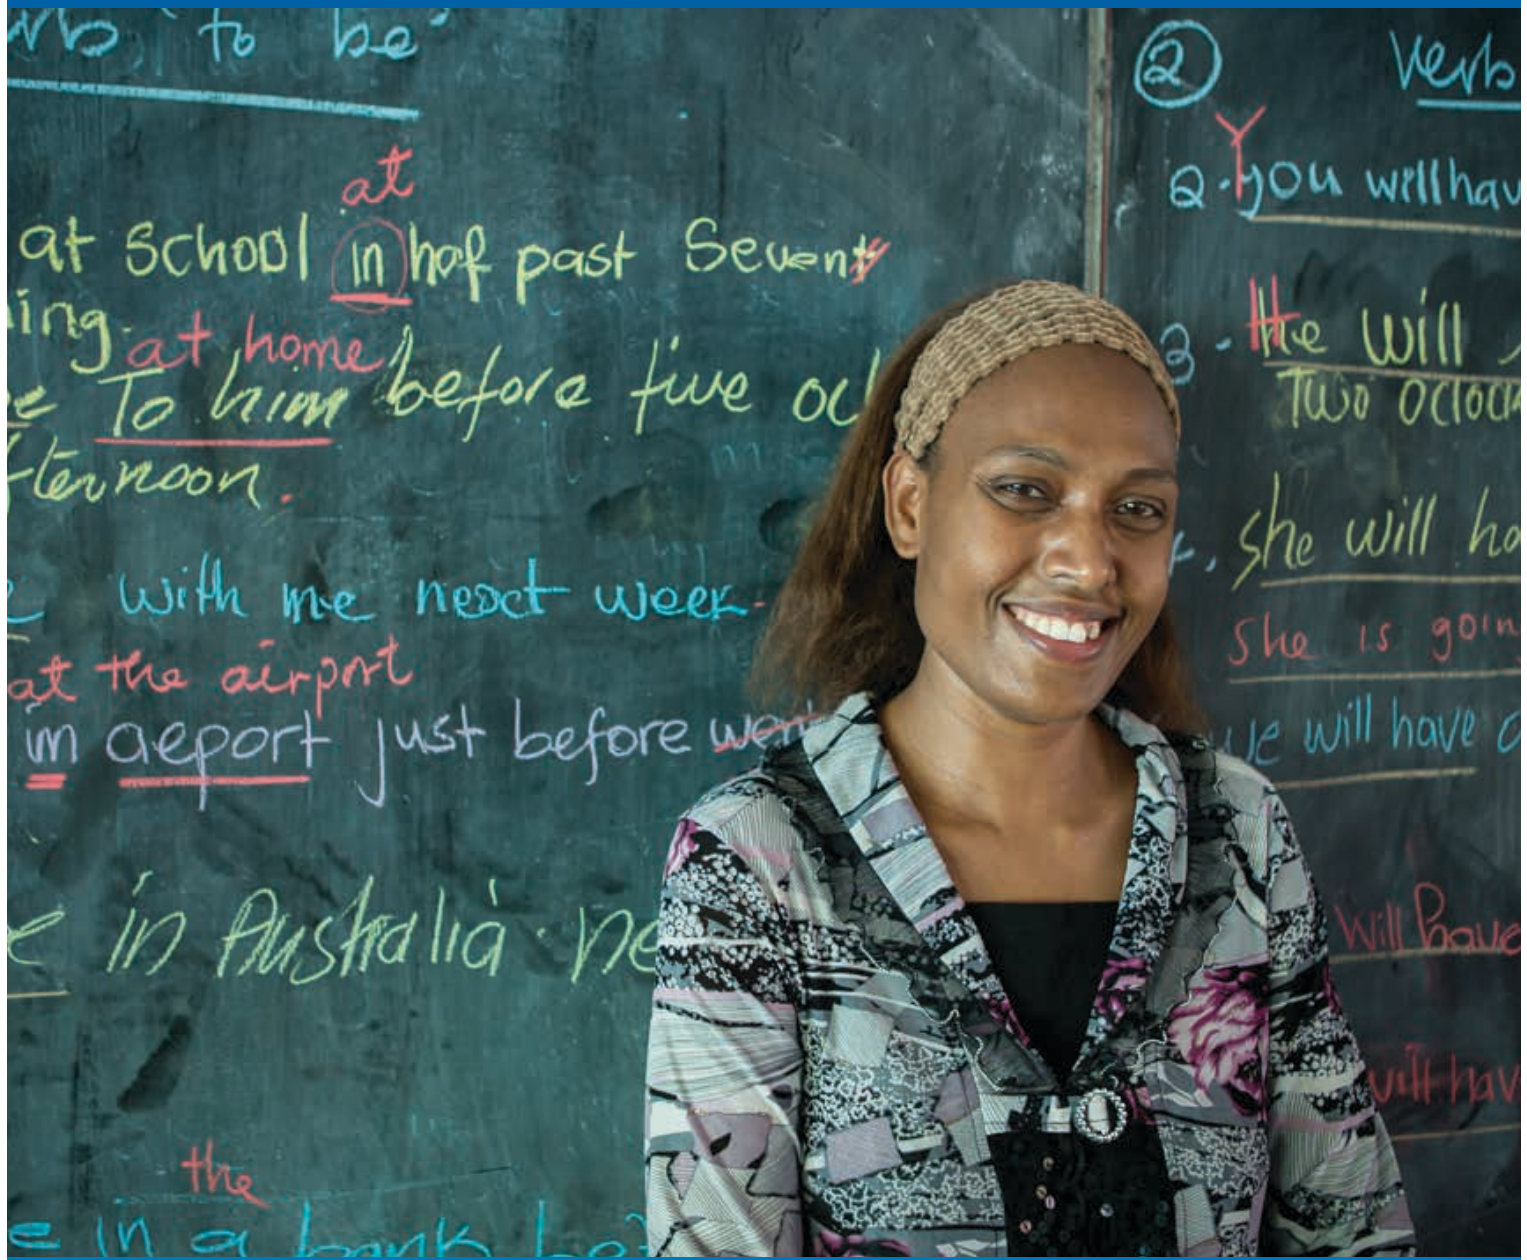 verb "to be"
at
at school in haf past Seventy
ing.
at home
To him before five ocl
fternoon.
with me nesct week.
at the airport
in aeport just before went
e in Australia. ne
the
e in a bank be
② Verb
Y
2. you will hav
3. He will
Two oclock
4. she will ha
she is goin
we will have a
will have
will hav